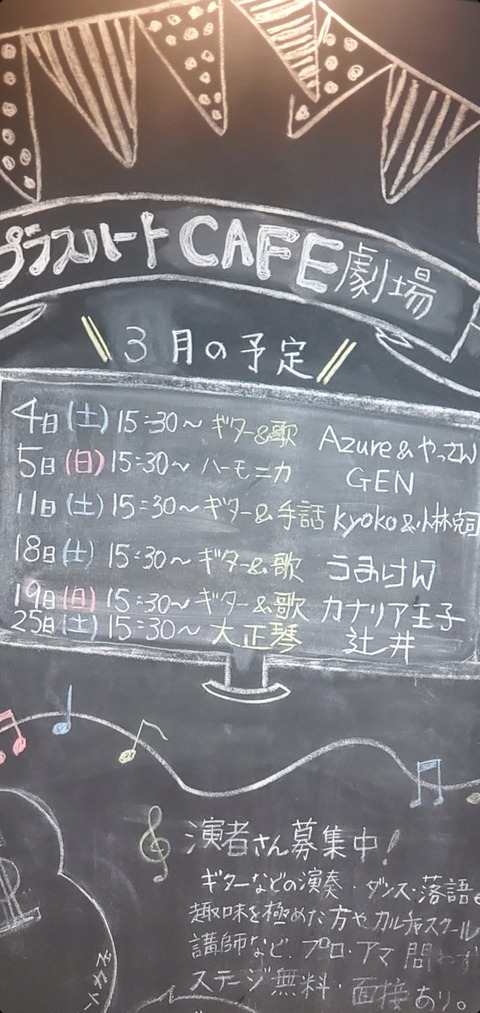 プラスハートCAFE劇場
3月の予定
4日(土)15:30〜 ギター&歌 Azure&やっさん
5日(日)15:30〜 ハーモニカ GEN
11日(土)15:30〜 ギター&手話 kyoko&小林克司
18日(土)15:30〜 ギター&歌 うまけん
19日(日)15:30〜 ギター&歌 カナリア王子
25日(土)15:30〜 大正琴 辻井
演者さん募集中!
ギターなどの演奏・ダンス・落語
趣味を極めた方やカルチャースクール
講師など、プロ・アマ問わず
ステージ無料・面接あり。